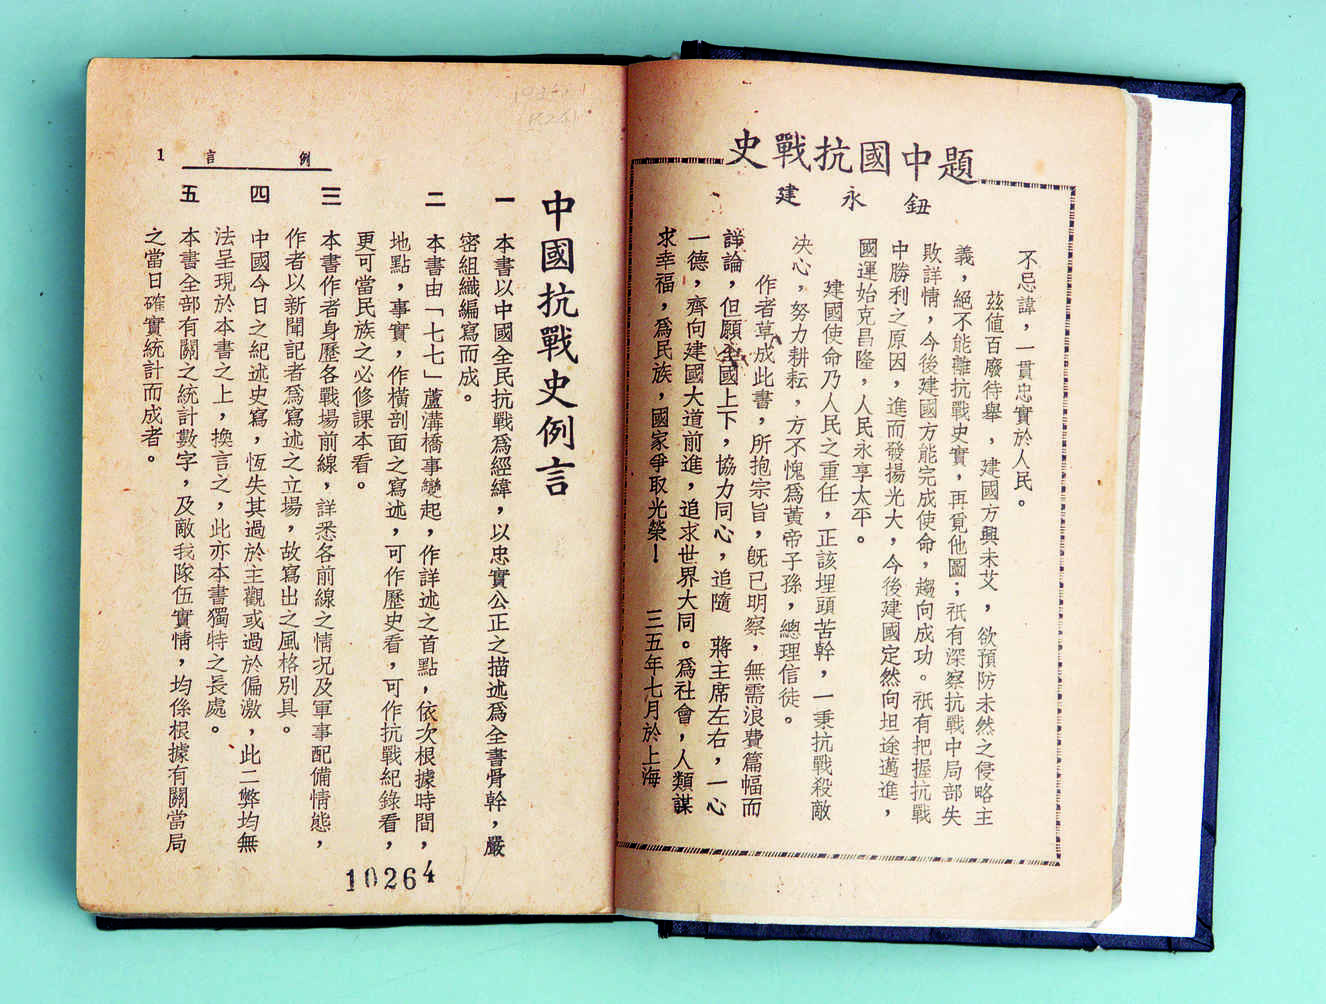 題中國抗戰史
鈕永建
不忌諱，一貫忠實於人民。
茲値百廢待舉，建國方興未艾，欲預防未然之侵略主
義，絕不能離抗戰史實，再覓他圖；祇有深察抗戰中局部失
敗詳情，今後建國方能完成使命，趨向成功。祇有把握抗戰
中勝利之原因，進而發揚光大，今後建國定然向坦途邁進，
國運始克昌隆，人民永享太平。
建國使命乃人民之重任，正該埋頭苦幹，一秉抗戰殺敵
決心，努力耕耘，方不愧爲黃帝子孫，總理信徒。
作者草成此書，所抱宗旨，旣已明察，無需浪費篇幅而
諍論，但願全國上下，協力同心，追隨　蔣主席左右，一心
一德，齊向建國大道前進，追求世界大同。爲社會，人類謀
求幸福，爲民族，國家爭取光榮！
三五年七月於上海
例言
1
中國抗戰史例言
一　本書以中國全民抗戰爲經緯，以忠實公正之描述爲全書骨幹，嚴
密組織編寫而成。
二　本書由「七七」蘆溝橋事變起，作詳述之首點，依次根據時間，
地點，事實，作橫剖面之寫述，可作歷史看，可作抗戰紀錄看，
更可當民族之必修課本看。
三　本書作者身歷各戰場前線，詳悉各前線之情況及軍事配備情態，
作者以新聞記者爲寫述之立場，故寫出之風格別具。
四　中國今日之紀述史寫，恆失其過於主觀或過於偏激，此二弊均無
法呈現於本書之上，換言之，此亦本書獨特之長處。
五　本書全部有關之統計數字，及敵我隊伍實情，均係根據有關當局
之當日確實統計而成者。
10264